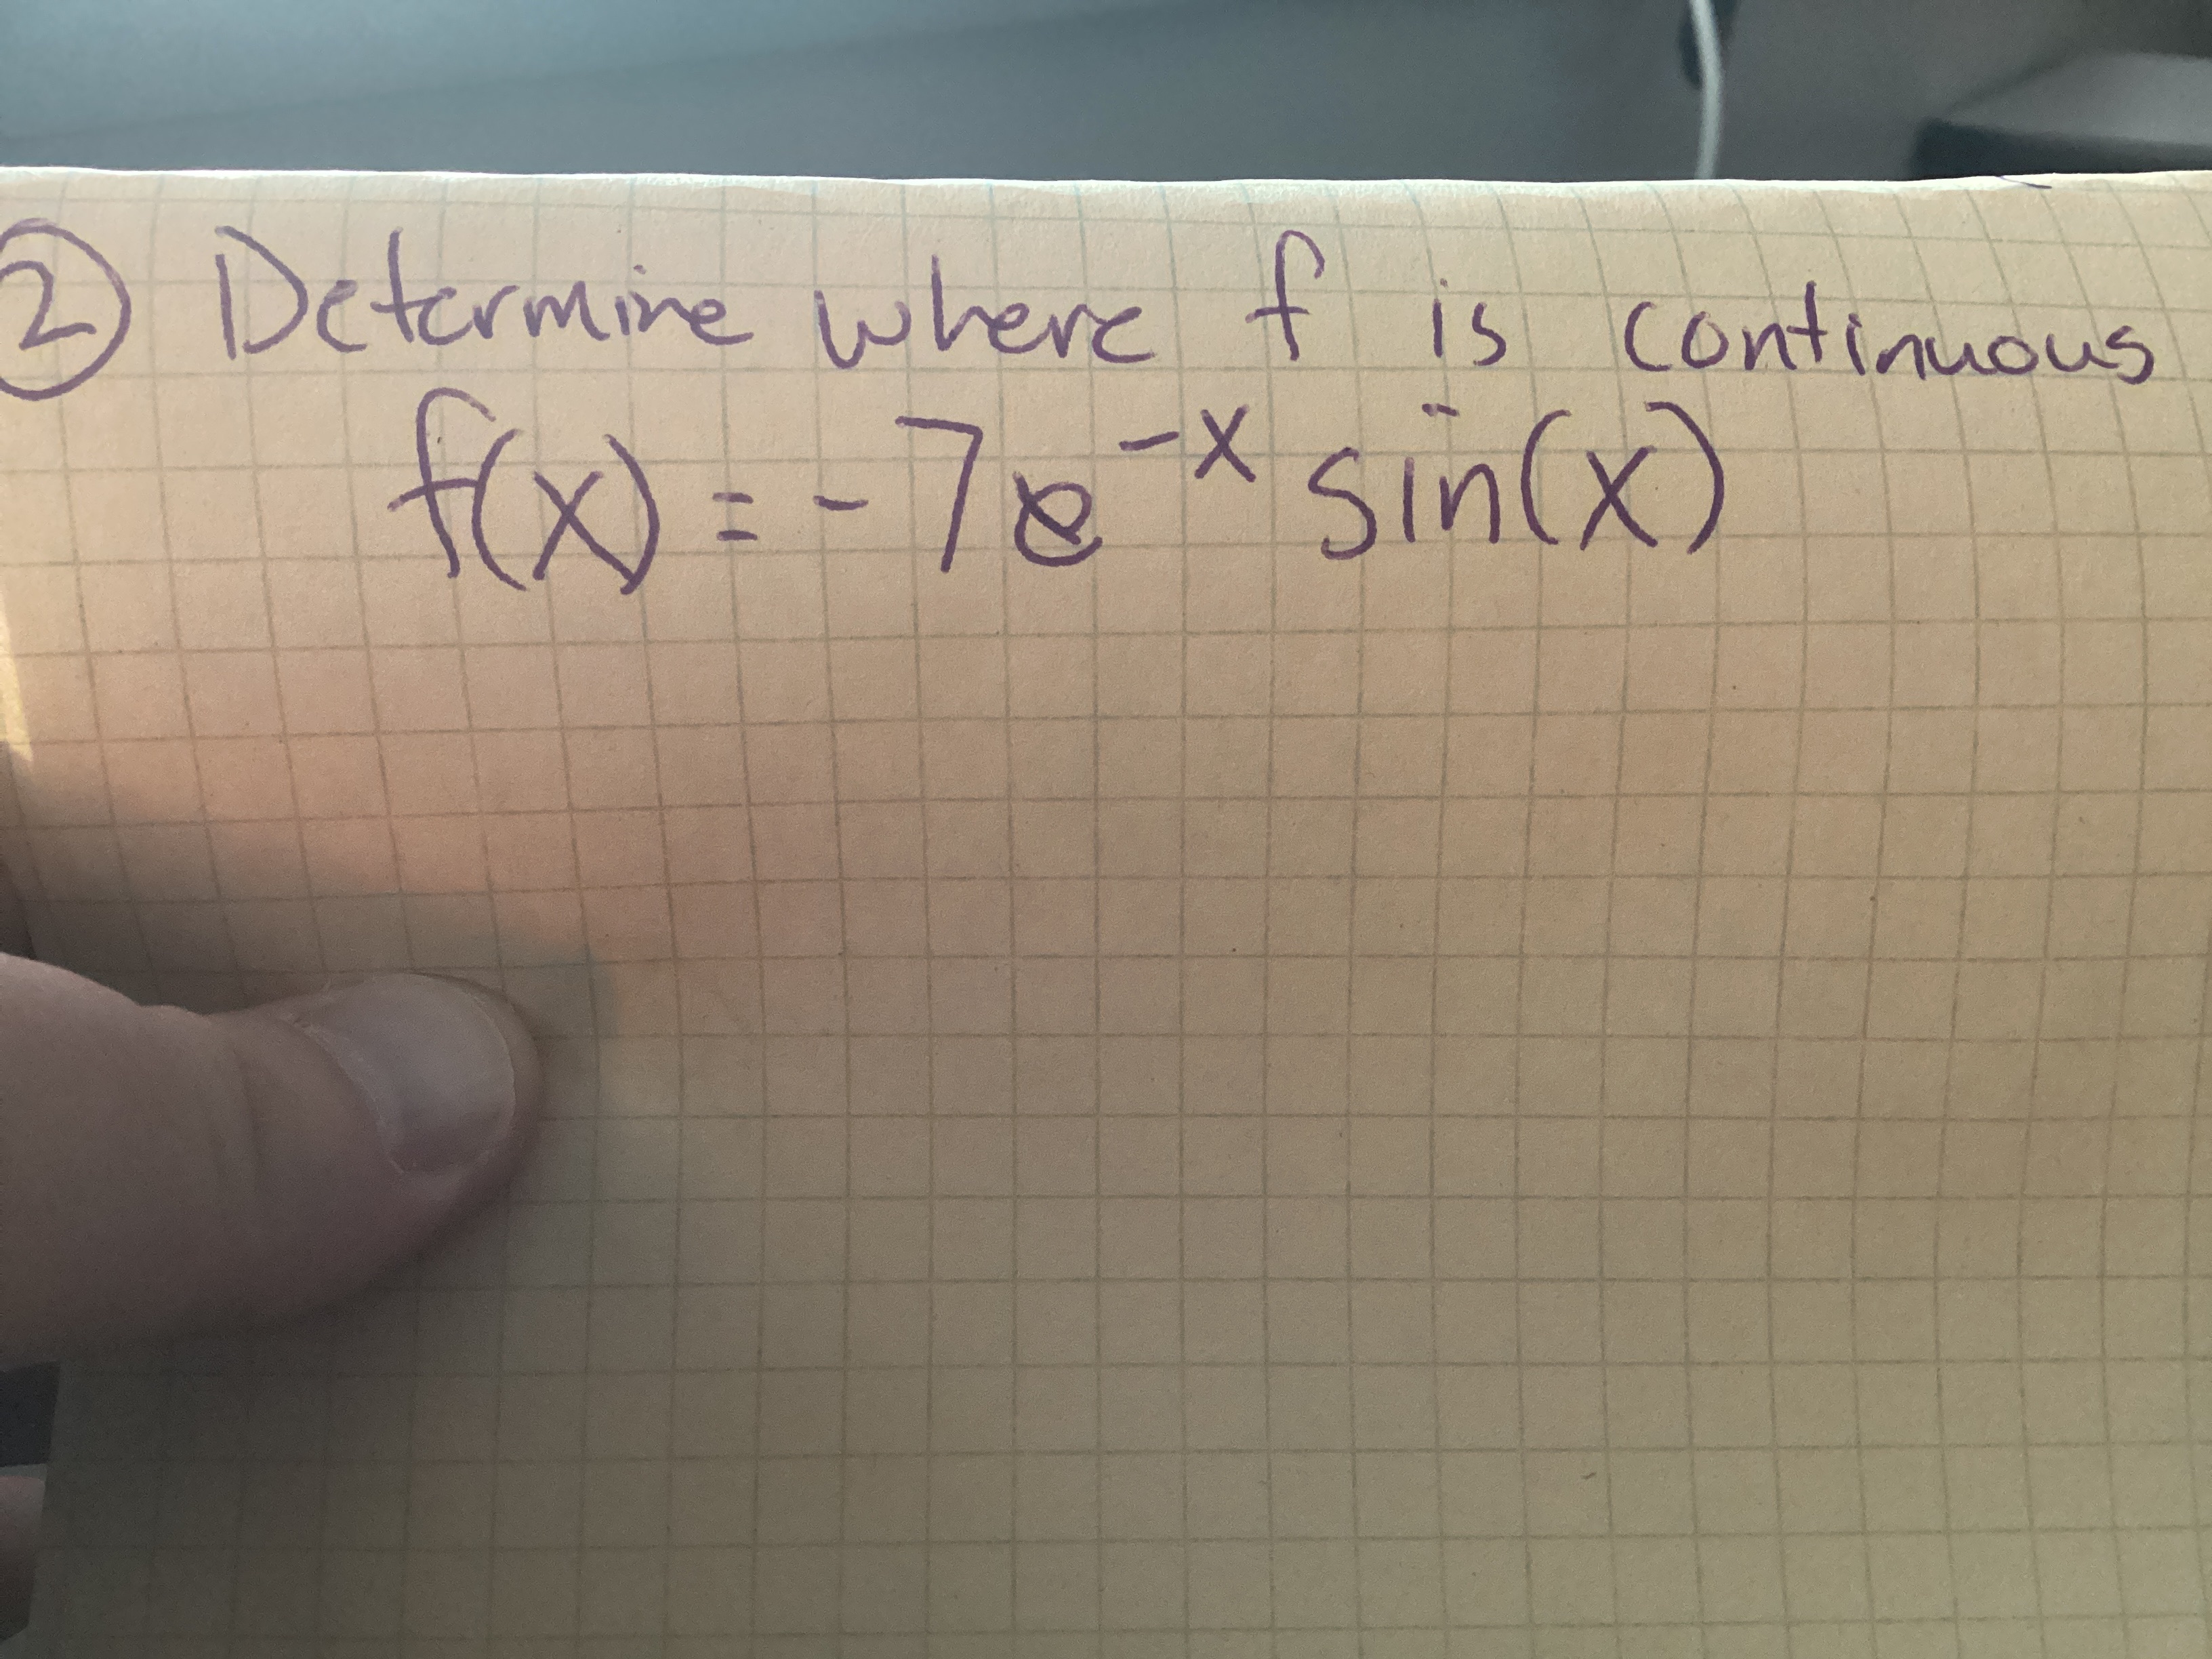 ② Determine where f is continuous
f(x) = -7e^{-x} sin(x)